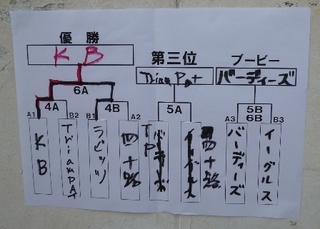 優勝
KB
第三位
TrianPat
ブービー
バーディーズ
6A
4A
4B
5A
5B
6B
A1
B2
B1
A2
A3
B3
KB
TrianPAT
ラビッツ
四十路
四十路
バーディーズ
イーグルス